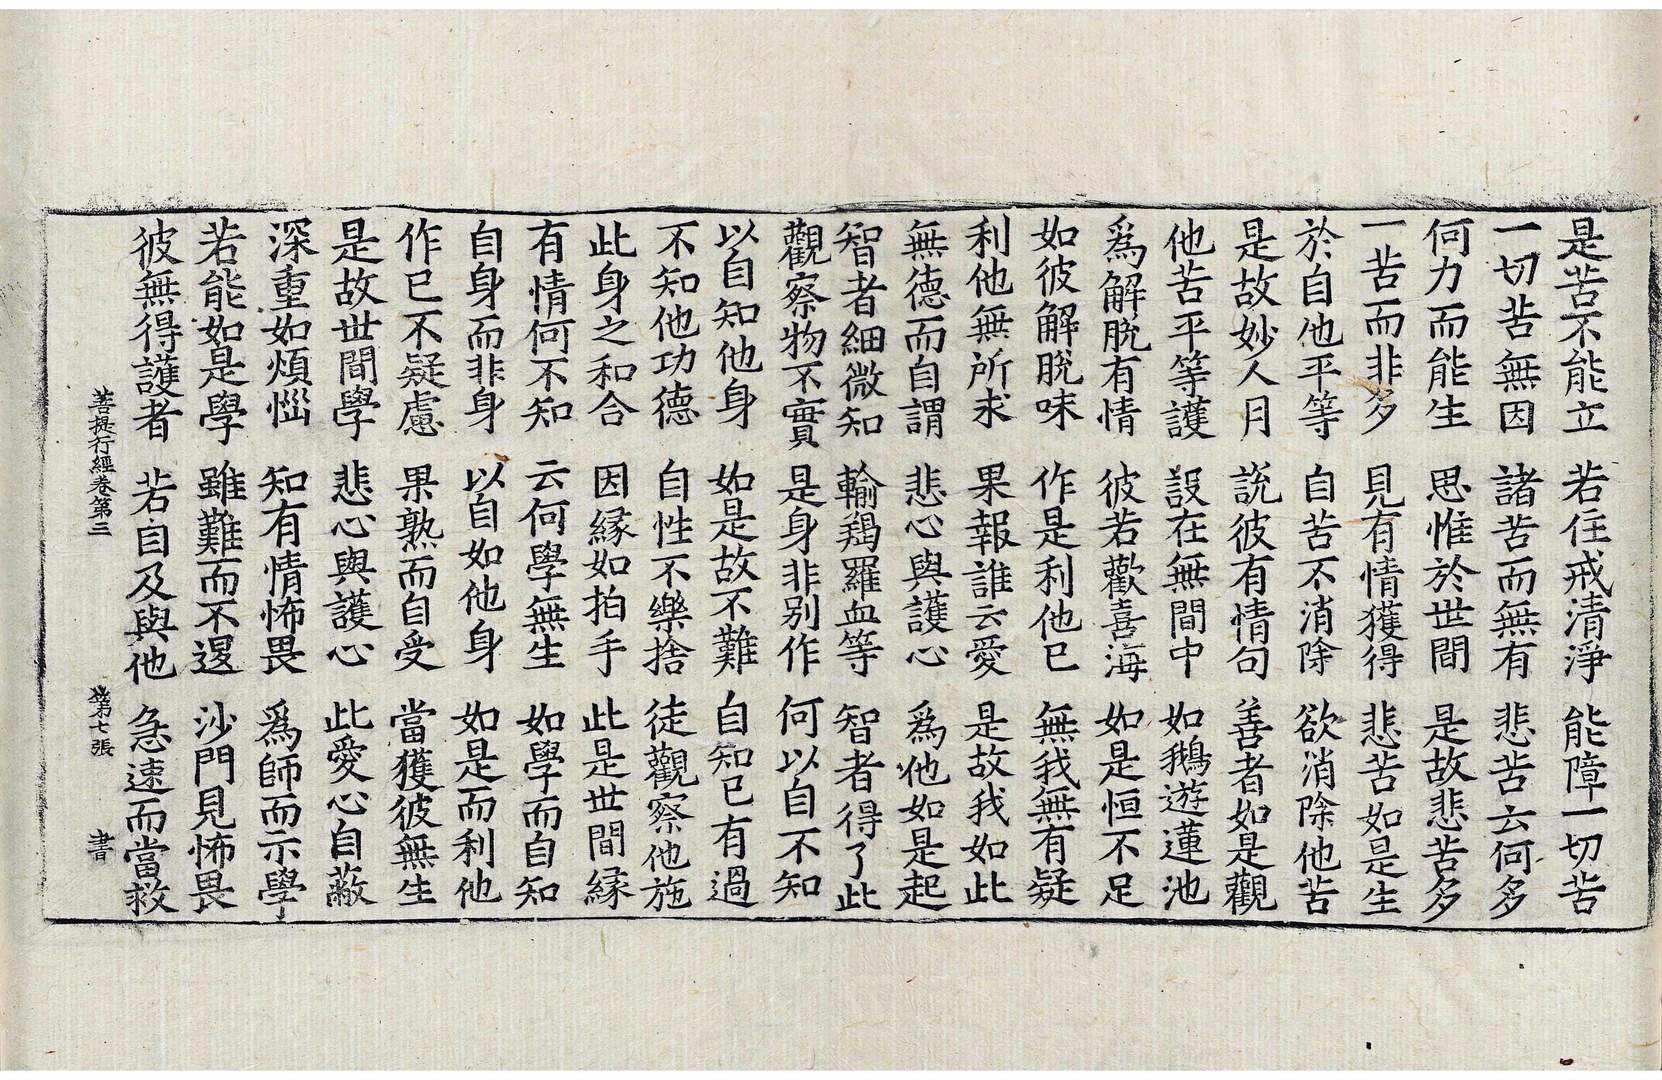 是苦不能立　若住戒清淨　能障一切苦
一切苦無因　諸苦而無有　悲苦云何多
何力而能生　思惟於世間　是故悲苦多
一苦而非多　見有情獲得　悲苦如是生
於自他平等　自苦不消除　欲消除他苦
是故妙人月　說彼有情句　善者如是觀
他苦平等護　設在無間中　如鵝遊蓮池
爲解脫有情　彼若歡喜海　如是恒不足
如彼解脫味　作是利他已　無我無有疑
利他無所求　果報誰云愛　是故我如此
無德而自謂　悲心與護心　爲他如是起
智者細微知　輸羯羅血等　智者得了此
觀察物不實　是身非別作　何以自不知
以自知他身　如是故不難　自知已有過
不知他功德　自性不樂捨　徒觀察他施
此身之和合　因緣如拍手　此是世間緣
有情何不知　云何學無生　如學而自知
自身而非身　以自如他身　如是而利他
作已不疑慮　果熟而自受　當獲彼無生
是故世間學　悲心與護心　此愛心自蔽
深重如煩惱　知有情怖畏　爲師而示學
若能如是學　雖難而不退　沙門見怖畏
彼無得護者　若自及與他　急速而當救
菩提行經卷第三　第七張　書